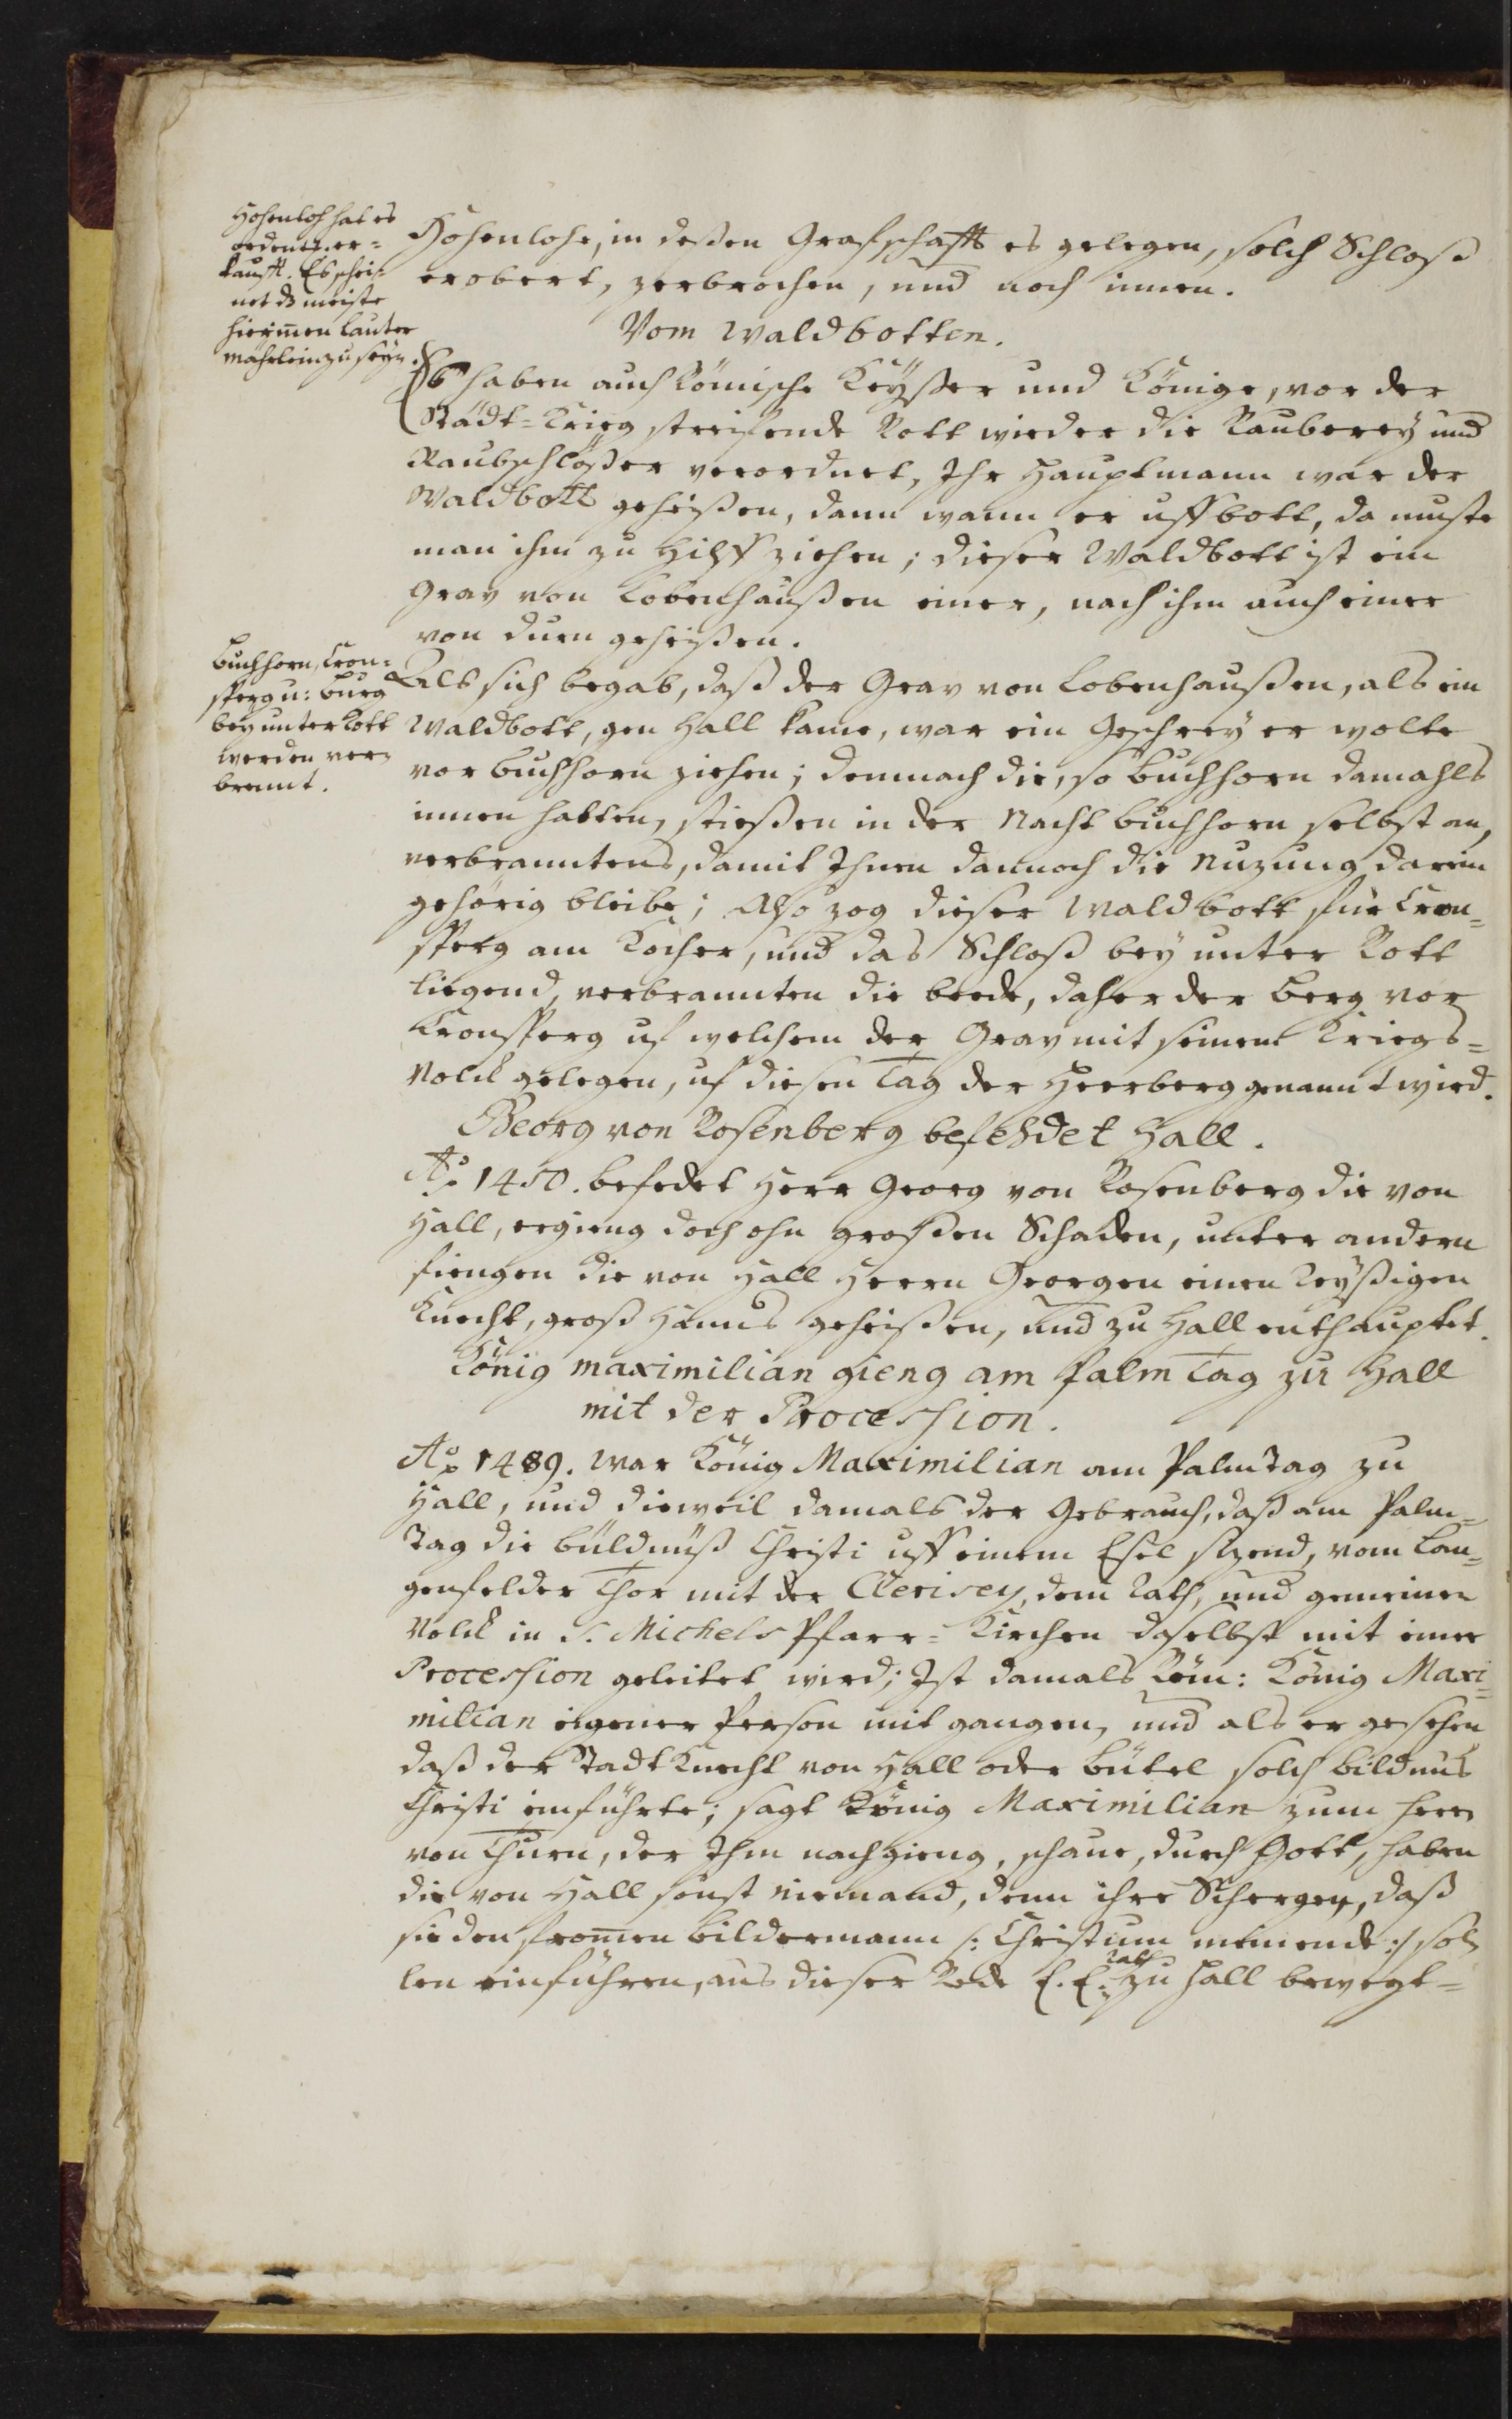 Hohenloh hat es
ordentl. er=
kaufft. Es schei=
net dz meiste
hierinnen lauter
mährlein zu seyn.
Hohenlohe, in deßen Grafschafft es gelegen, solch Schloß
erobert, zerbrochen, und noch innen.
Vom Waldbotten.
Es haben auch Römische Keyßer und Könige, vor der
Städt=Krieg streifende Rott wieder die Rauberey und
Raubschlößer verordnet, Ihr Hauptmann war der
Waldbott geheißen, dann wann er uffbott, da muste
man ihm zu Hilff ziehen; dieser Waldbott ist ein
Grav von Lobenhaußen einer, nach ihm auch einer
von Durn geheißen.
Buchhorn, Cron=
sperg u: Burg
bey unter Rott
werden ver=
brennt.
Als sich begab, daß der Grav von Lobenhaußen, als ein
Waldbott, gen Hall kame, war ein Geschrey er wolte
vor Buchhorn ziehen; demnach die, so Buchhorn damahls
innen hatten, stießen in der Nacht Buchhorn selbst an,
verbranntens, damit Ihnen dannoch die Nuzung darein
gehörig bleibe; Also zog dieser Waldbott für Cron=
sperg am Kocher, und das Schloß bey unter Rott
liegend, verbrannten die beede, daher der Berg vor
Cronsperg uf welchem der Grav mit seinem Kriegs=
Volck gelegen, uf diesen Tag der Heerberg genannt wird.
Georg von Rosenberg befehdet Hall.
Aō 1450. befedet Herr Georg von Rosenberg die von
Hall, ergieng doch ohn großen Schaden, unter andern
fiengen die von Hall Herrn Georgen einen Reyßigen
Knecht, groß Hanns geheißen, und zu Hall enthauptet.
König Maximilian gieng am Palm Tag zu Hall
mit der Procession.
Aō 1489. war König Maximilian am Palm Tag zu
Hall, und dieweil damals der Gebrauch, daß am Palm=
Tag die büldnuß Christi uff einem Esel sizend, vom Lan=
genfelder Thor mit der Clerisey, dem Rath, und gemeinen
Volck in S. Michels Pfarr=Kirchen daselbst mit einer
Procession geleitet wird; Ist damals Röm: König Maxi=
milian eigener Person mit gangen, und als er gesehen
daß der Stadt Knecht von Hall oder Bütel solch bildnus
Christi einführte; sagt König Maximilian zum Herrn
von Thurn, der Ihm nachgieng, schaue, durch Gott, haben
die von Hall sonst niemand, denn ihre Schergen, daß
sie den fromen bildermann /: Christum meinende :/ sol=
len einführen, aus dieser Rede E. E. Rath zu Hall bewegt=